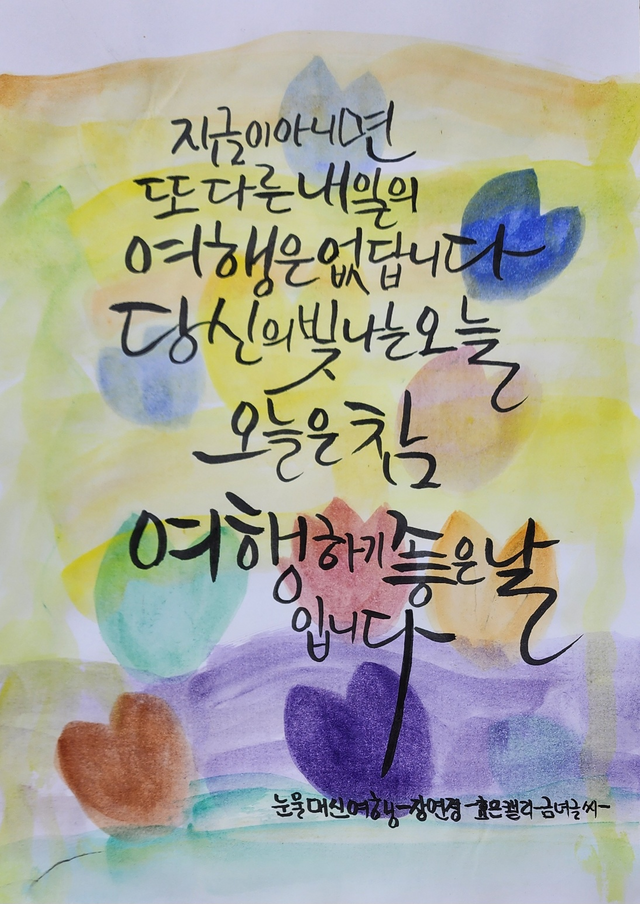 지금이아니면
또다른내일의
여행은없답니다
당신의빛나는오늘
오늘은참
여행하기좋은날
입니다
눈물대신여행-장연정-효은캘리-금녀글씨-